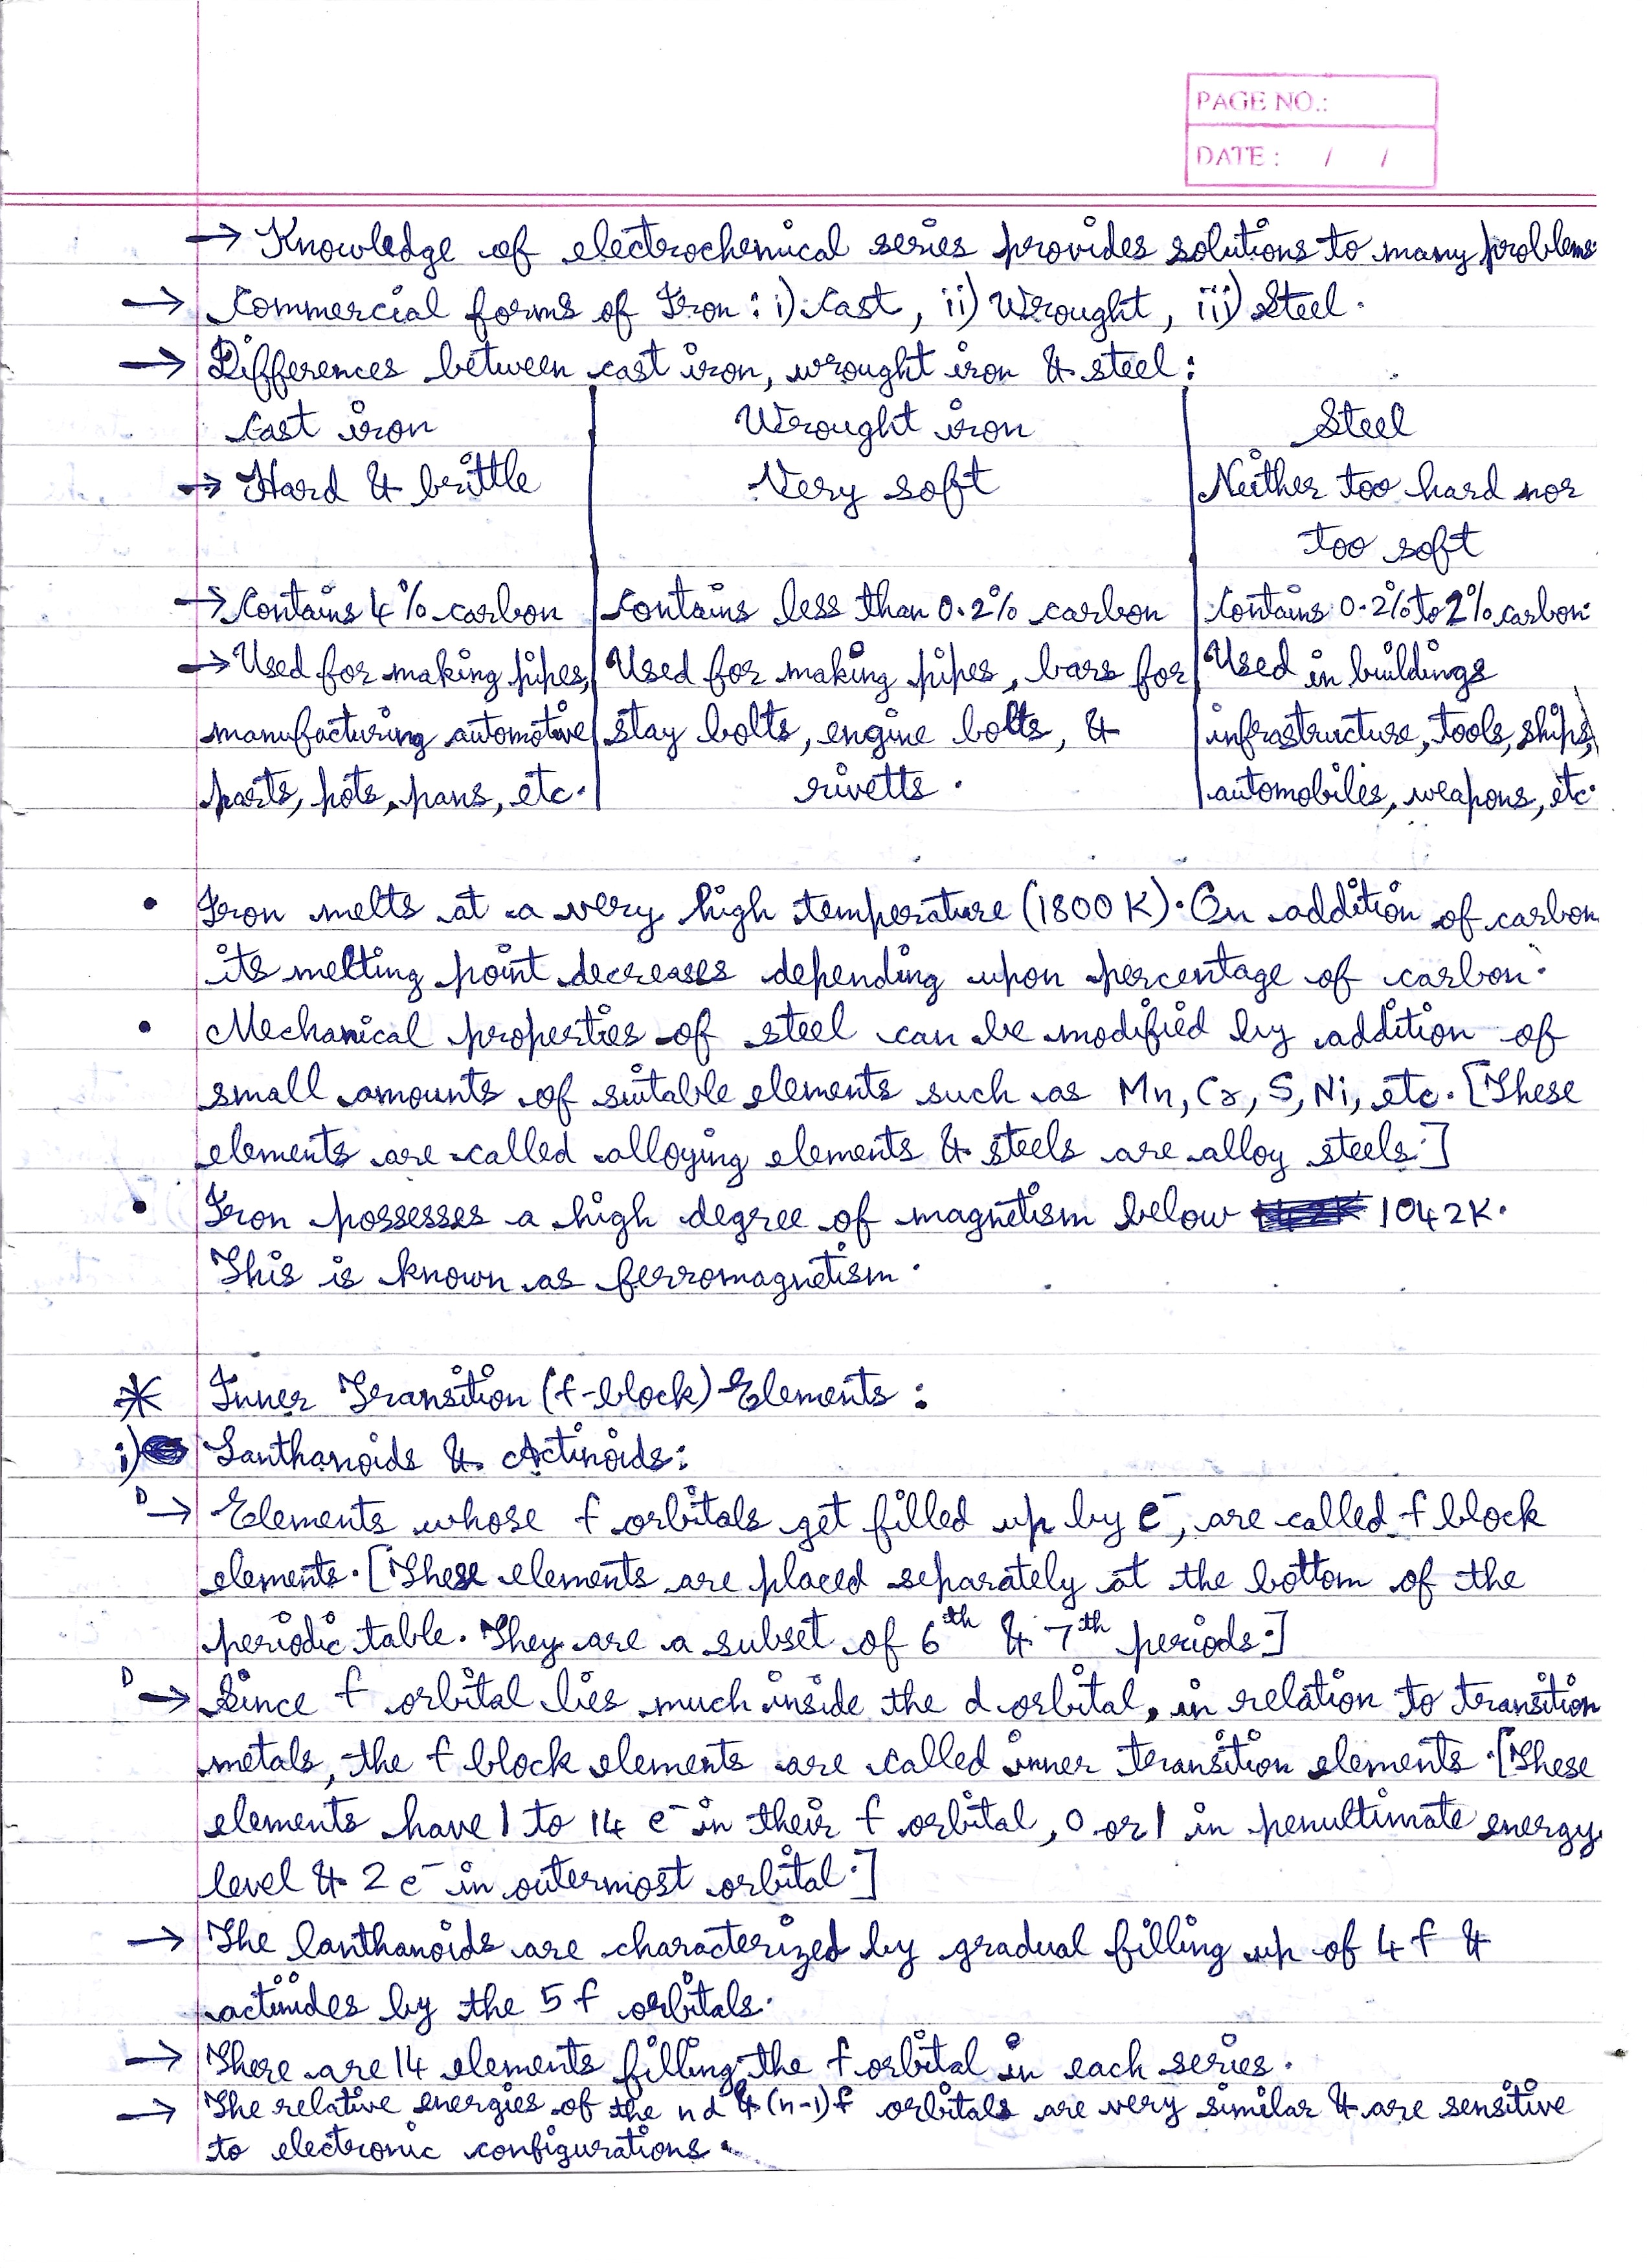 PAGE NO.:
DATE : / /
→ Knowledge of electrochemical series provides solutions to many problems
→ Commercial forms of Iron : i) Cast, ii) Wrought, iii) Steel.
→ Differences between cast iron, wrought iron & steel :
Cast iron Wrought iron Steel
→ Hard & brittle Very soft Neither too hard nor
too soft
→ Contains 4% carbon Contains less than 0.2% carbon Contains 0.2% to 2% carbon.
→ Used for making pipes, Used for making pipes, bars for Used in buildings
manufacturing automotive stay bolts, engine bolts, & infrastructure, tools, ships,
parts, pots, pans, etc. rivetts. automobiles, weapons, etc.
• Iron melts at a very high temperature (1800 K). On addition of carbon
its melting point decreases depending upon percentage of carbon.
• Mechanical properties of steel can be modified by addition of
small amounts of suitable elements such as Mn, Cr, S, Ni, etc. [These
elements are called alloying elements & steels are alloy steels.]
• Iron possesses a high degree of magnetism below 1042K.
This is known as ferromagnetism.
* Inner Transition (f-block) Elements :
i) Lanthanoids & Actinoids :
D → Elements whose f orbitals get filled up by e⁻, are called f block
elements. [These elements are placed separately at the bottom of the
periodic table. They are a subset of 6th & 7th periods.]
D → Since f orbital lies much inside the d orbital, in relation to transition
metals, the f block elements are called inner transition elements. [These
elements have 1 to 14 e⁻ in their f orbital, 0 or 1 in penultimate energy
level & 2 e⁻ in outermost orbital.]
→ The lanthanoids are characterized by gradual filling up of 4f &
actinides by the 5f orbitals.
→ There are 14 elements filling the f orbital in each series.
→ The relative energies of the nd & (n-1)f orbitals are very similar & are sensitive
to electronic configurations.